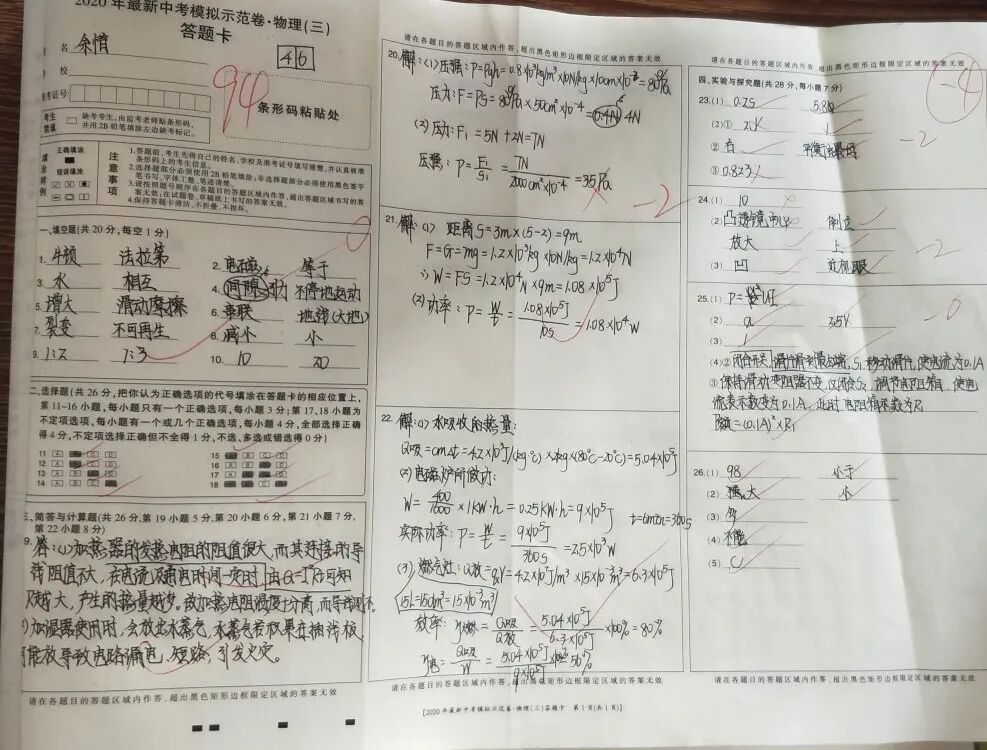 2020年最新中考模拟示范卷·物理(三)
答题卡
名 余情
46
94
校
准考证号
条形码粘贴处
考生禁填
缺考考生,由监考老师贴条形码,
并用2B铅笔填涂左边缺考标记。
填涂样例
正确填涂
错误填涂
注意事项
1.答题前,考生先将自己的姓名、学校及准考证号填写清楚,并认真核准
条形码上的考生信息。
2.选择题部分必须使用2B铅笔填涂;非选择题部分必须使用黑色签字
笔书写,字体工整、笔迹清楚。
3.请按照题号顺序在各题目的答题区域内作答,超出答题区域书写的答
案无效;在试题卷、草稿纸上书写的答案无效。
4.保持答题卡清洁、不折叠、不损坏。
一、填空题(共20分,每空1分)
1. 牛顿 法拉第
2. 电磁 等于
3. 水 相互
4. 间隙 不停地运动
5. 增大 滑动摩擦
6. 串联 地线(大地)
7. 裂变 不可再生
8. 减小 小
9. 1:2 1:3
10. 10 20
二、选择题(共26分,把你认为正确选项的代号填涂在答题卡的相应位置上,
第11-16小题,每小题只有一个正确选项,每小题3分;第17、18小题为
不定项选择,每小题有一个或几个正确选项,每小题4分,全部选择正确
得4分,不定项选择正确但不全得1分,不选、多选或错选得0分)
11 15
12 16
13 17
14 18
三、简答与计算题(共26分,第19小题5分,第20小题6分,第21小题7分,
第22小题8分)
9. 答:(1)加热器的发热电阻的阻值很大,而其连接的导
线阻值不大,在电流及通电时间一定时,由Q=I²Rt可知
R越大,产生的热量越多。故加热电阻温度十分高,而导线则不。
加湿器使用时,会放出水蒸气,水蒸气若积累在插线板
可能导致电路漏电、短路,引发火灾。
请在各题目的答题区域内作答,超出黑色矩形边框限定区域的答案无效
请在各题目的答题区域内作答,超出黑色矩形边框限定区域的答案无效
20. 解:(1)压强:P=ρgh=0.8×10³kg/m³×10N/kg×10cm×10⁻²=800Pa
压力:F=PS=800Pa×50cm²×10⁻⁴=4N
(2)压力:F₁=5N+2N=7N
压强:P=F₁/S₁=7N/2000cm²×10⁻⁴=35Pa
-2
21. 解:(1)距离S=3m×(5-2)=9m
F=G=mg=1.2×10³kg×10N/kg=1.2×10⁴N
∴W=FS=1.2×10⁴N×9m=1.08×10⁵J
(2)功率:P=W/t=1.08×10⁵J/10s=1.08×10⁴W
22. 解:(1)水吸收的热量:
Q吸=cmΔt=4.2×10³J/(kg·℃)×2kg×(80℃-20℃)=5.04×10⁵J
(2)电磁炉所做功:
W=400/1600×1kW·h=0.25kW·h=9×10⁵J t=6min=360s
实际功率:P=W/t=9×10⁵J/360s=2.5×10³W
(3)燃气灶:Q放=qV=4.2×10⁷J/m³×15×10⁻³m³=6.3×10⁵J
15L=15dm³=15×10⁻³m³
效率:η燃=Q吸/Q放=5.04×10⁵J/6.3×10⁵J×100%=80%
η电=Q吸/W=5.04×10⁵J/9×10⁵J 56%
请在各题目的答题区域内作答,超出黑色矩形边框限定区域的答案无效
[2020年最新中考模拟示范卷·物理(三)答题卡 第1页(共1页)]
请在各题目的答题区域内作答,超出黑色矩形边框限定区域的答案无效
四、实验与探究题(共28分,每小题7分)
-4
23.(1) 0.2S
(2)① 1
② 有
-2
③ 0.823
24.(1) 10
(2) 凸透镜中心 倒立
放大 上
(3) 凹 近视眼
-2
25.(1) P=UI
(2) a 3.5V
(3) 1
-0
(4)②
26.(1) 98 小于
(2) 大 小
(3)
(4) 不能
(5) C
请在各题目的答题区域内作答,超出黑色矩形边框限定区域的答案无效